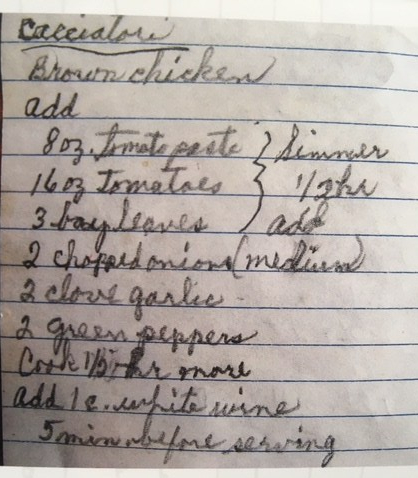 Caccialori
Brown chicken
add
8 oz. tomato paste } Simmer
16 oz tomatoes } 1/2 hr
3 bay leaves } add
2 chopped onions (medium)
2 clove garlic
2 green peppers
Cook hr more
add 1 c. white wine
5 min. before serving